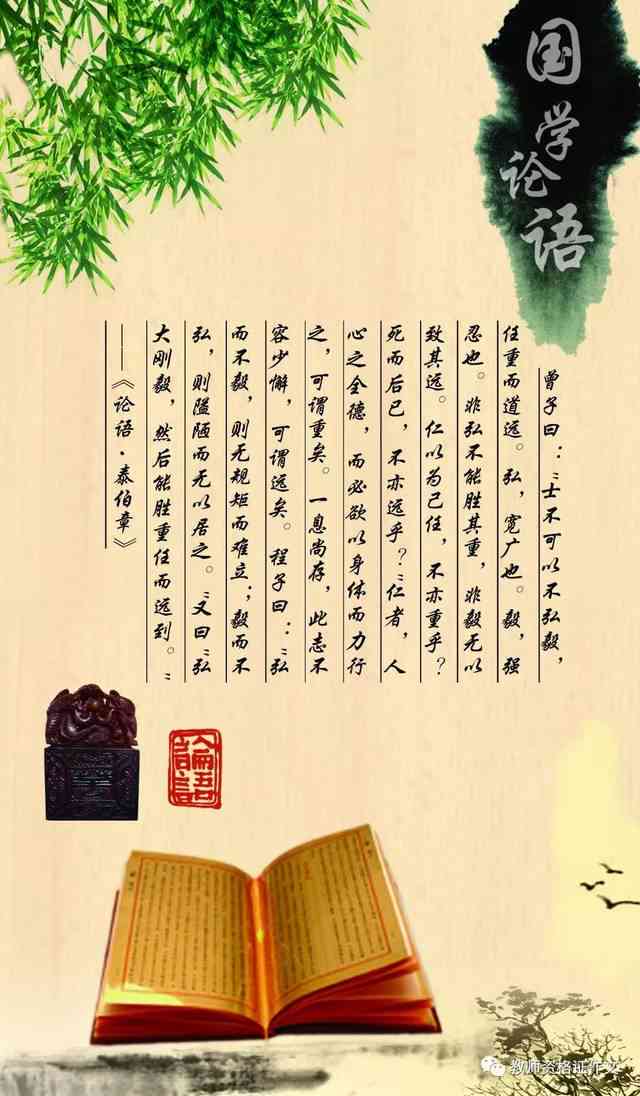 国学论语
曾子曰：“士不可以不弘毅，
任重而道远。弘，宽广也。毅，强
忍也。非弘不能胜其重，非毅无以
致其远。仁以为己任，不亦重乎？
死而后已，不亦远乎？”仁者，人
心之全德，而必欲以身体而力行
之，可谓重矣。一息尚存，此志不
容少懈，可谓远矣。程子曰：“弘
而不毅，则无规矩而难立；毅而不
弘，则隘陋而无以居之。”又曰“弘
大刚毅，然后能胜重任而远到。”
——《论语·泰伯章》
論語
教师资格证作文